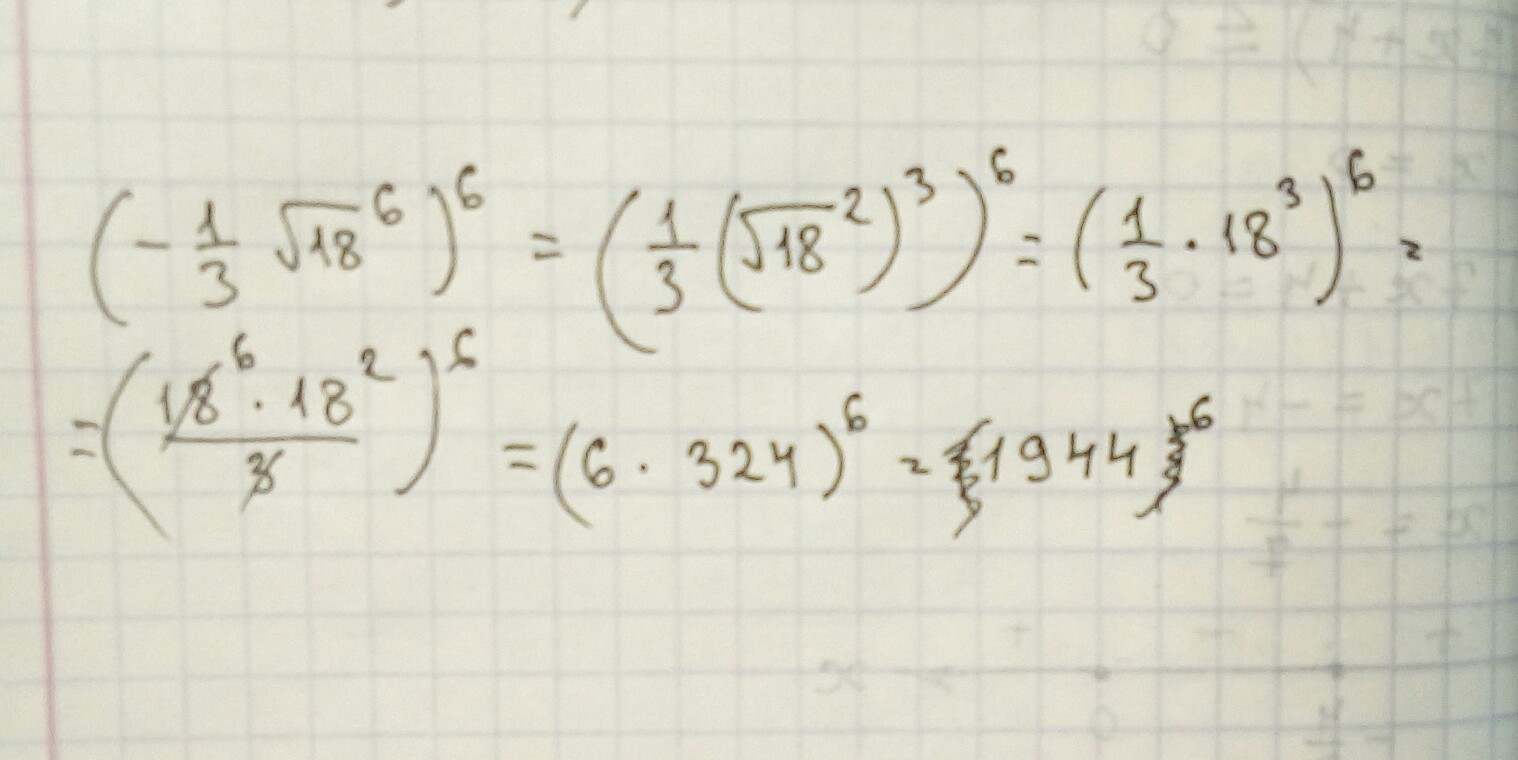 (-1/3 √18⁶)⁶ = (1/3 (√18²)³)⁶ = (1/3 · 18³)⁶ =
= (18⁶ · 18² / 3)⁶ = (6 · 324)⁶ = 1944⁶